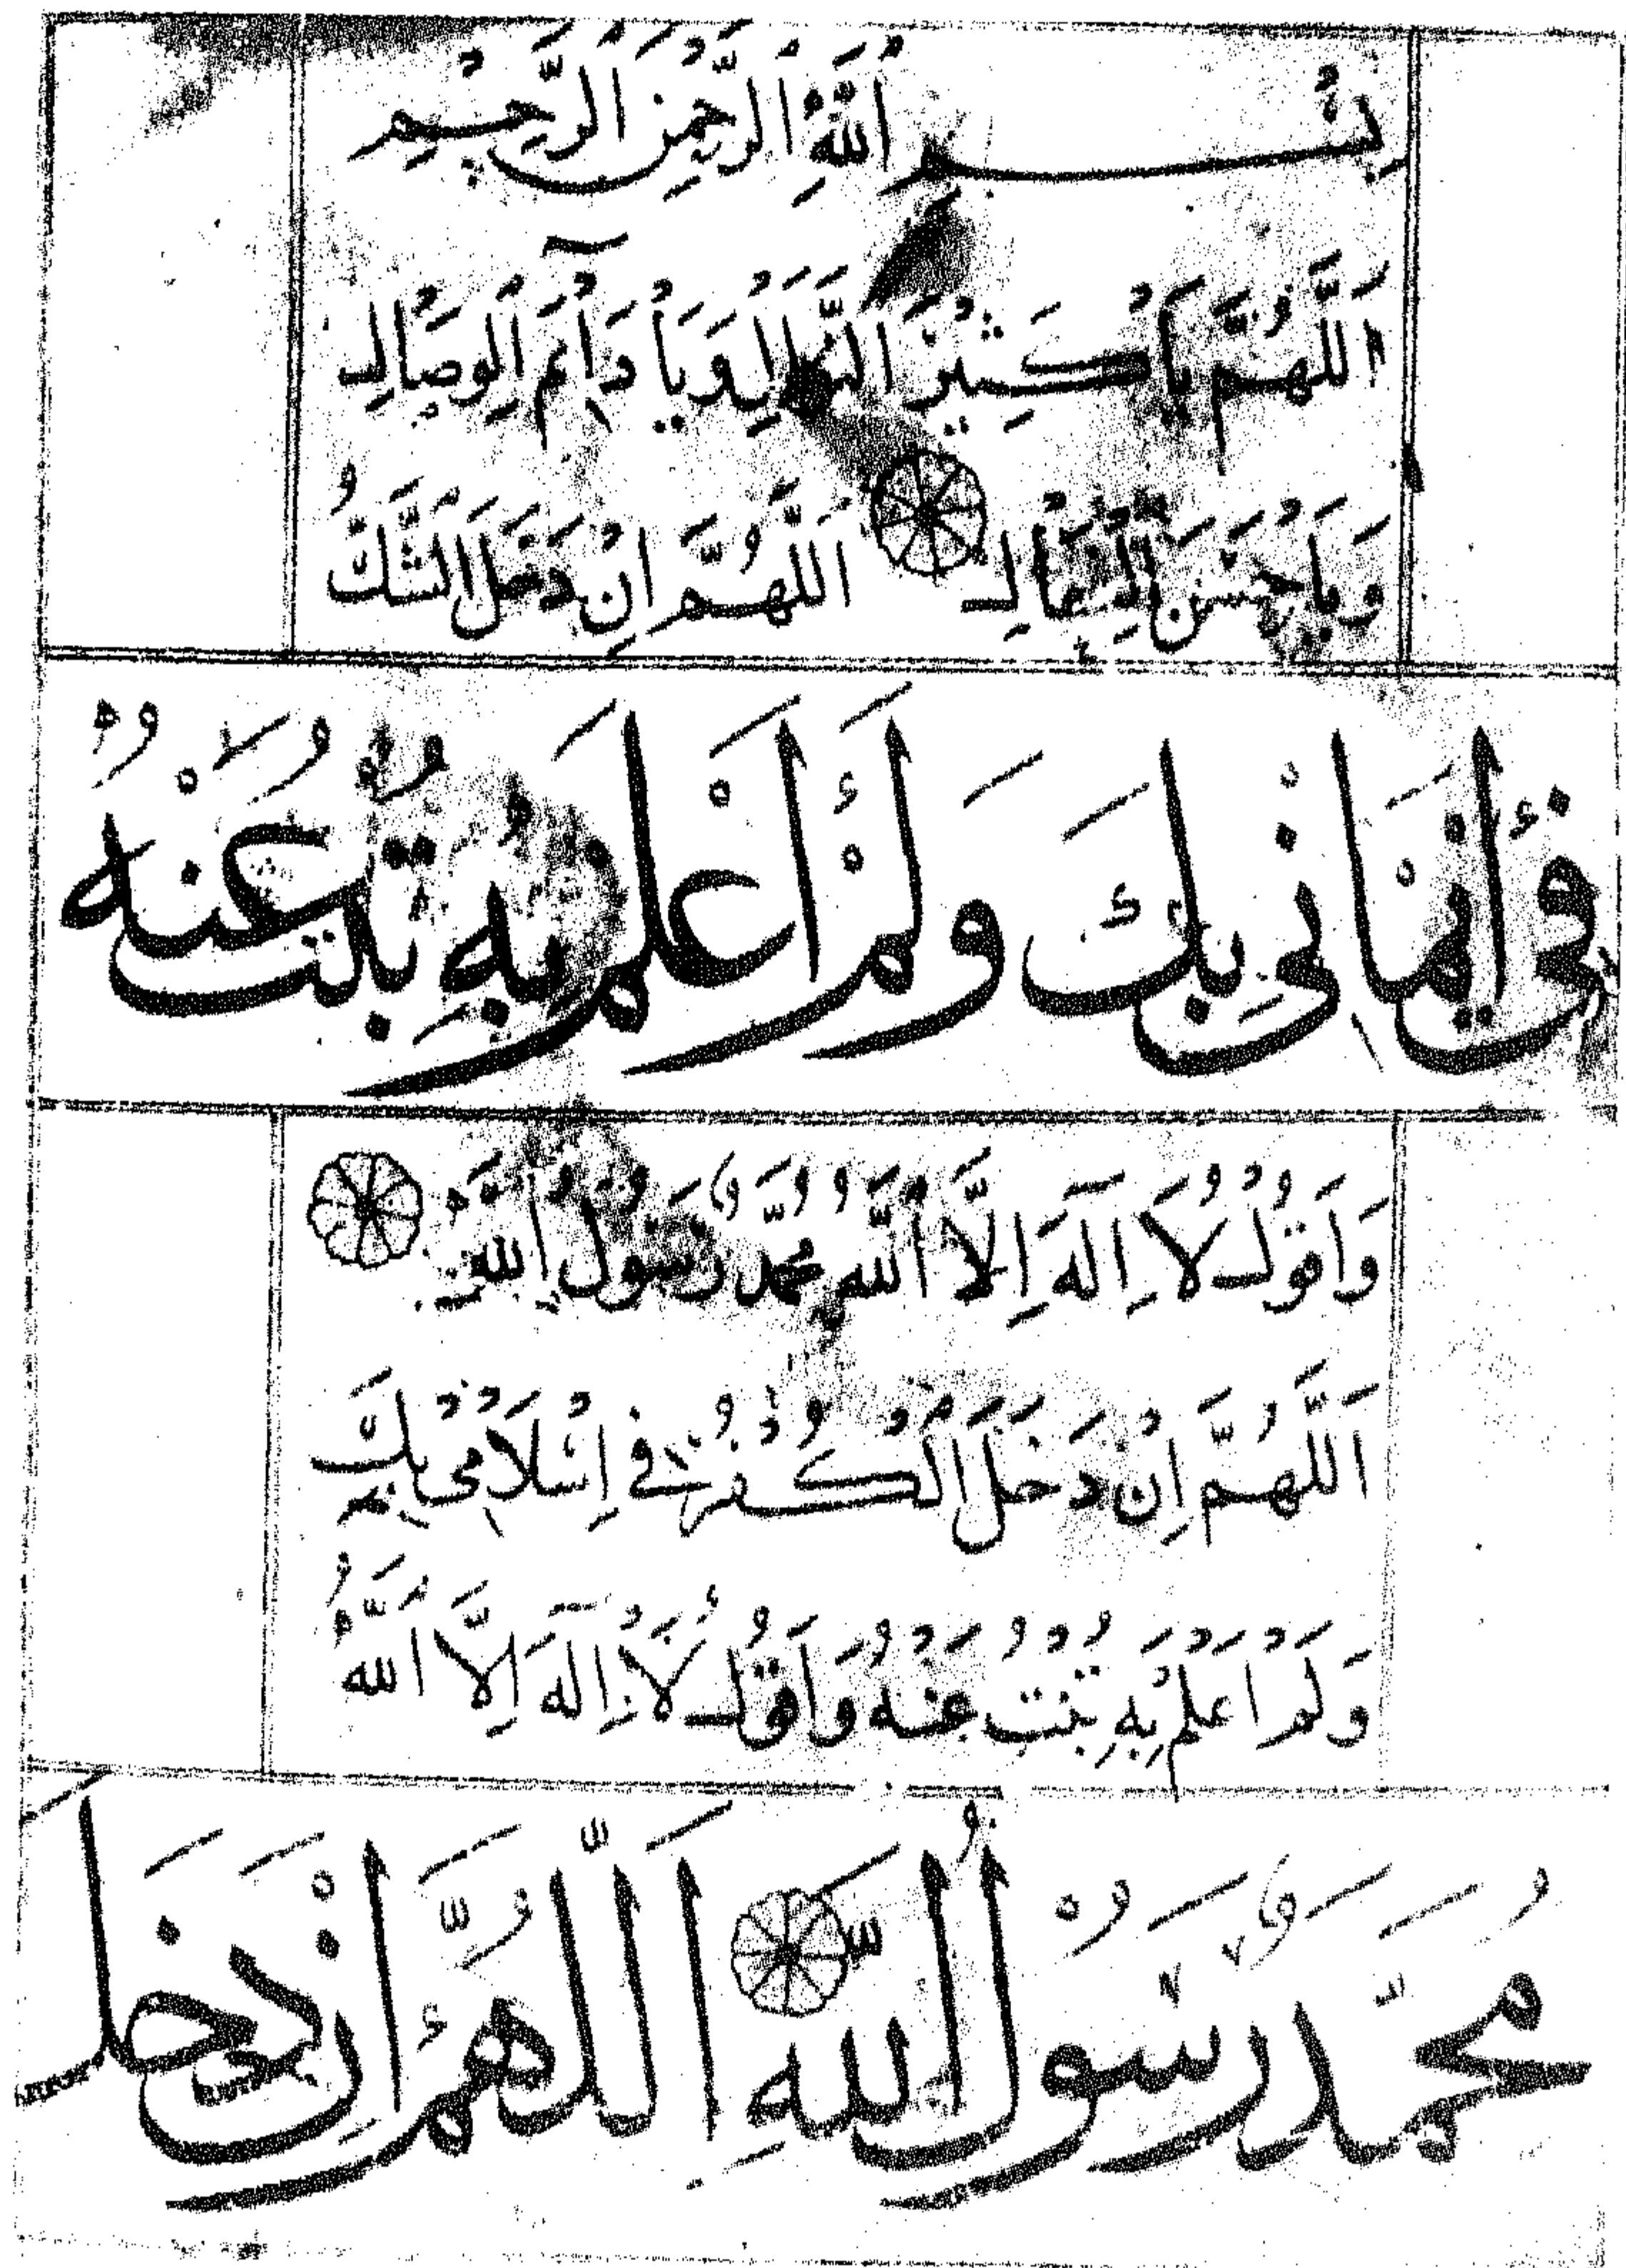 بِسْمِ اللّٰهِ الرَّحْمٰنِ الرَّحِيْمِ
اَللّٰهُمَّ يَا كَثِيْرَ النَّوَالِ وَيَا دَآئِمَ الْوِصَالِ
وَيَا حُسْنَ الْفِعَالِ اَللّٰهُمَّ اِنْ دَخَلَ الشَّكُّ
فِيْ اِيْمَانِيْ بِكَ وَلَمْ اَعْلَمْ بِهِ تُبْتُ عَنْهُ
وَاَقُوْلُ لَا اِلٰهَ اِلَّا اللّٰهُ مُحَمَّدٌ رَسُوْلُ اللّٰهِ
اَللّٰهُمَّ اِنْ دَخَلَ الْكُفْرُ فِيْ اِسْلَامِيْ بِكَ
وَلَمْ اَعْلَمْ بِهِ تُبْتُ عَنْهُ وَاَقُوْلُ لَا اِلٰهَ اِلَّا اللّٰهُ
مُحَمَّدٌ رَسُوْلُ اللّٰهِ اَللّٰهُمَّ اِنْ دَخَلَ